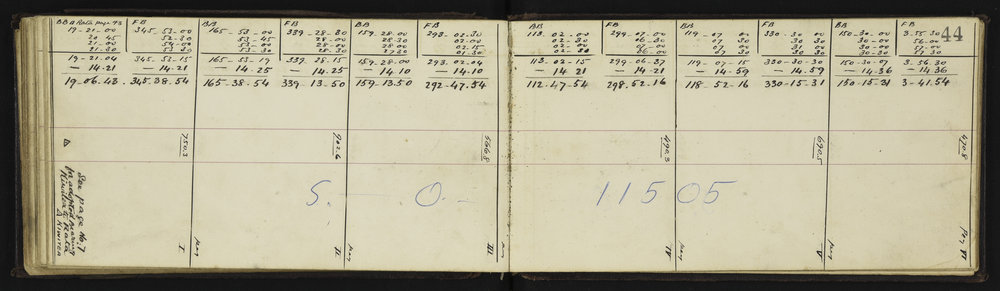 BB Δ Rata page 43 FB BB FB BB FB BB FB BB FB BB FB
44
19-21-00 345-53-00 165-53-00 339-28-30 159.28-00 293-02-30 113.02-00 299-07-00 119-07-00 330-30-00 150-30-00 3.55.30
20 45 52-30 53-45 28-00 28-30 02-00 02-30 06-30 07 30 30 00 30-00 56-00
21-00 54-00 53-00 28-00 28-00 02-15 07 00 31 00 30-00 57-00
21-30 53-30 02.30 06-00 07 30 30 30 57 30
19-21.04 345.53-15 165-53-19 339.28-15 159.28-00 293.02-04 113-02-15 299-06-37 119-07-15 330-30-30 150-30-07 3.56.30
- 14.21 - 14.21 - 14.25 - 14.25 - 14.10 - 14.10 - 14 21 - 14.21 - 14.59 - 14.59 - 14.36 - 14.36
19.06.43 345.38.54 165-38-54 339.13-50 159.13.50 292-47.54 112.47-54 298.52.16 118-52-16 330-15-31 150.15-31 3-41.54
750.3
902.6
566.8
490.3
690.5
470.8
S. O. - 11505
Δ
See page No. 7
for adopted bearing
Kiwitea to Rata
Δ Kiwitea
I
Peg II
Peg III
Peg IV
Peg V
Peg VI